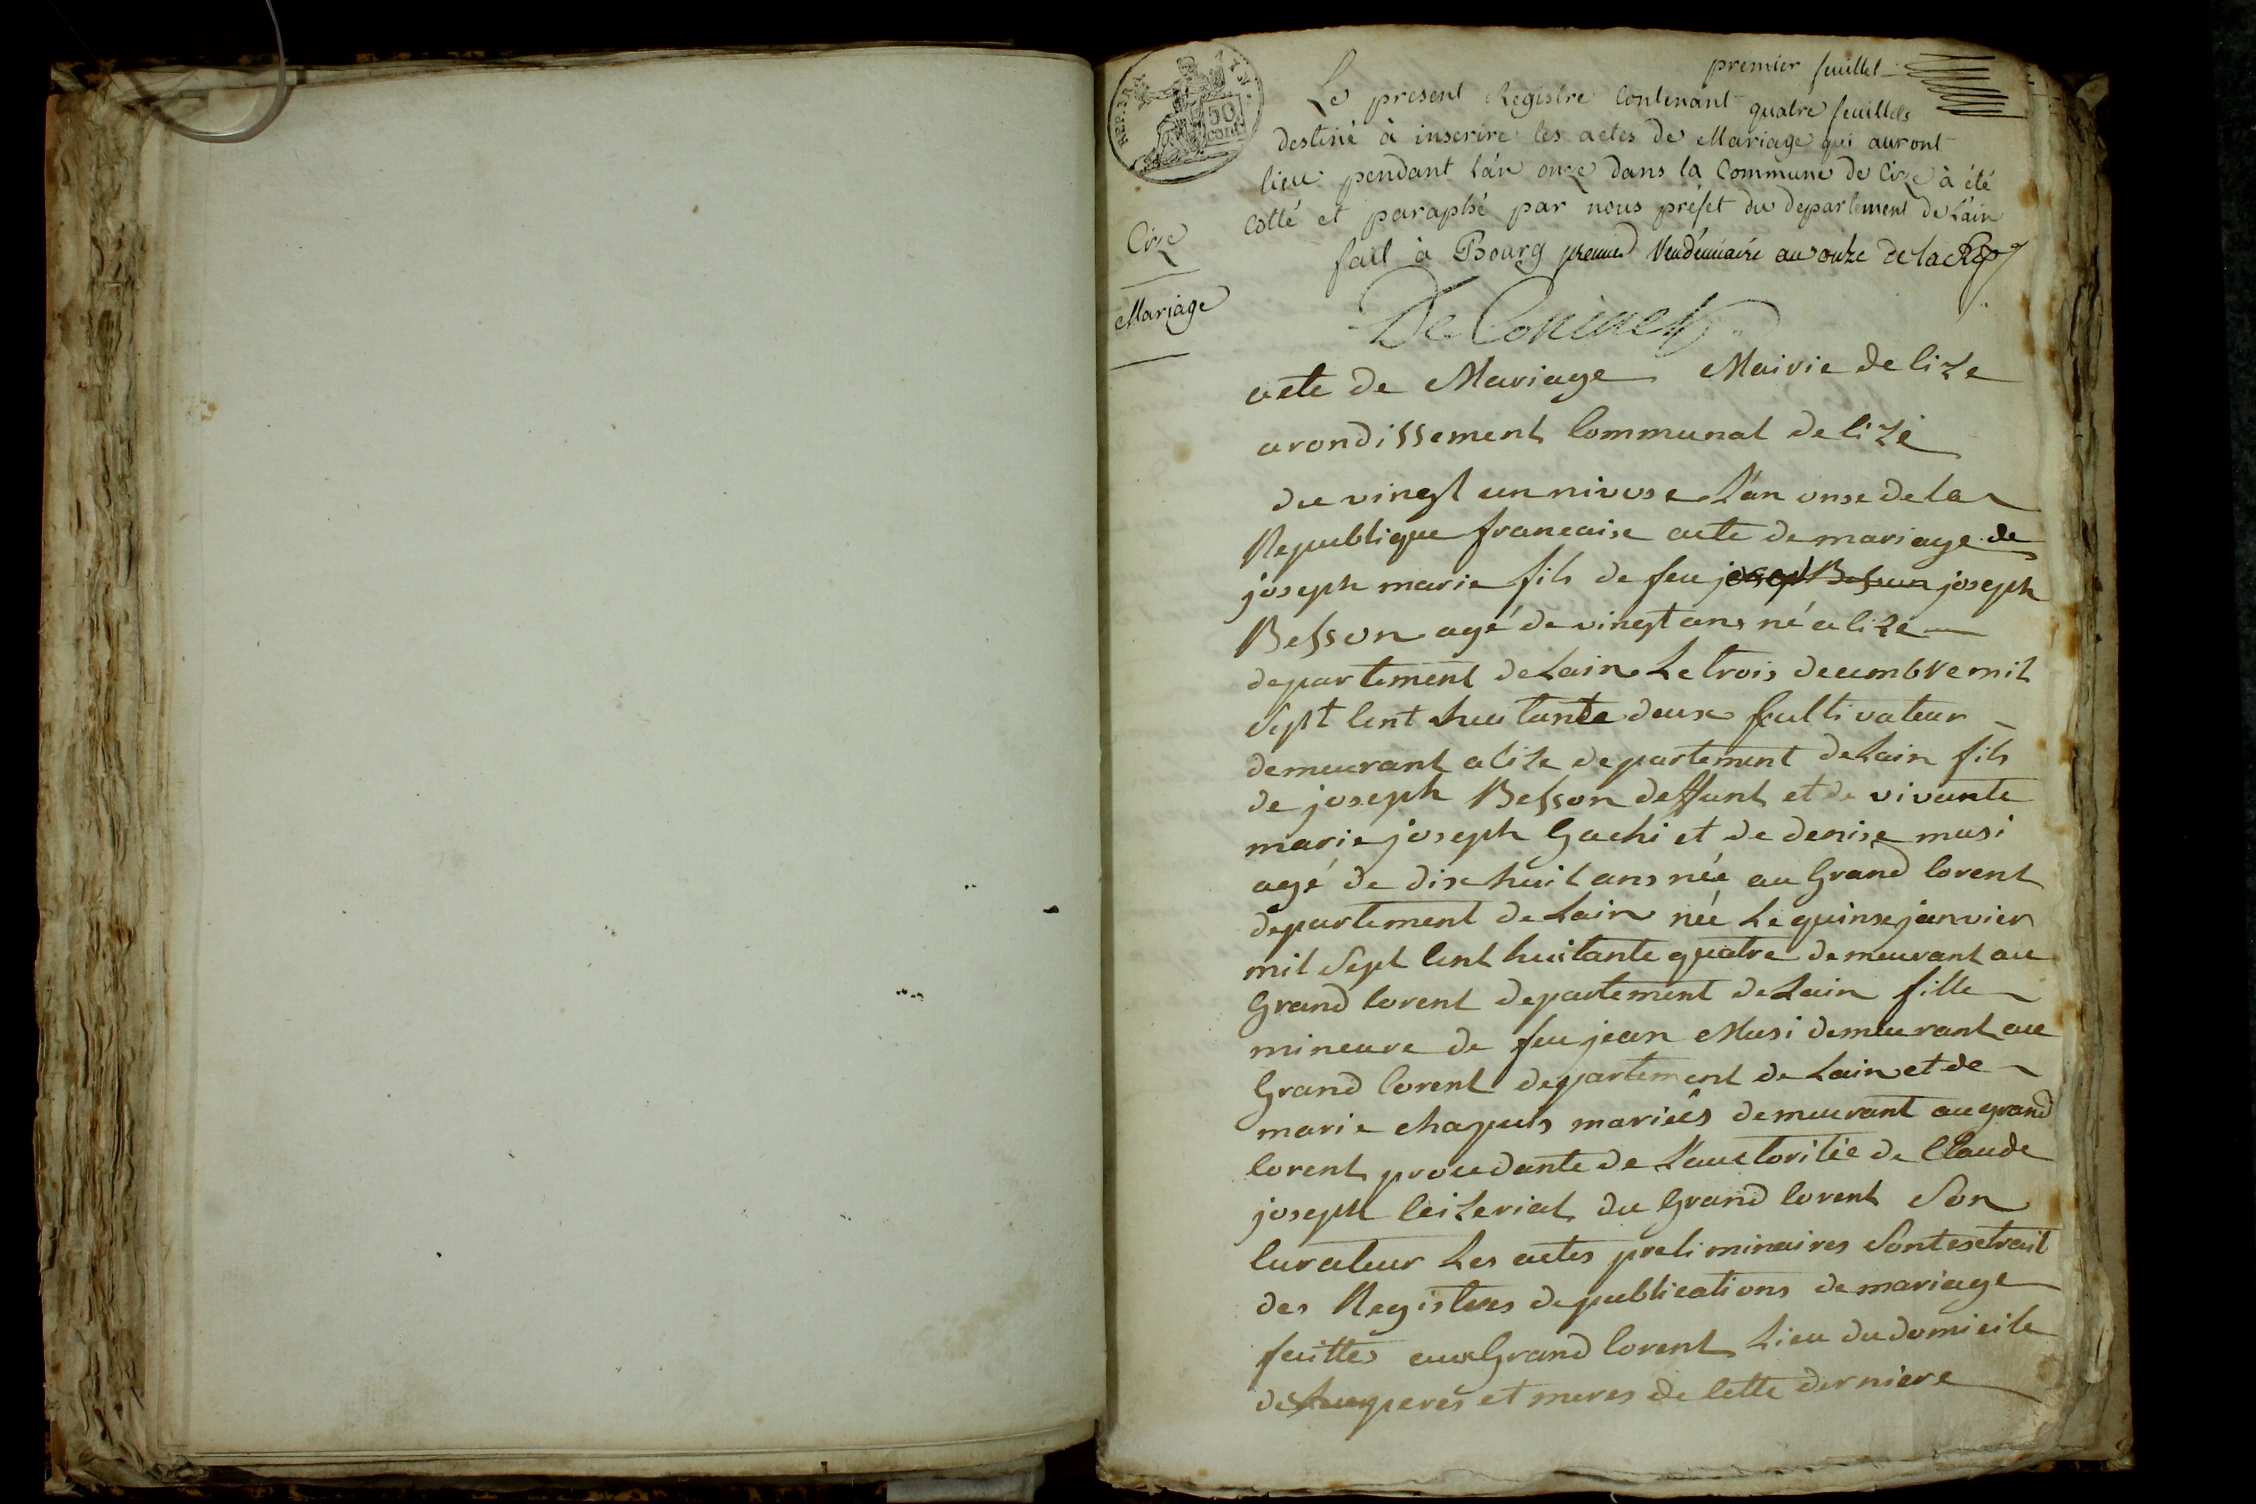 premier feuillet
REP. FRA
50
cent.
Le present Registre Contenant quatre feuillets
destiné à inscrire les actes de Mariage qui auront
lieu pendant l'an onze dans la Commune de Cize à été
Cotté et paraphé par nous préfet du departement de L'ain
fait à Bourg premier Vendémiaire an onze de la Rep
Cize
Mariage
De Coninck
acte de Mariage Mairie de Cize
arondissement Communal de Cize
du vingt un nivose L'an onse de la
Republique francaise acte de mariage de
joseph marie fils de feu joseph Besson joseph
Besson agé de vingt ans né a Cize
departement de Lain Le trois decembre mil
Sept Cent huitante deux Cultivateur
demeurant a Cize departement de Lain fils
de joseph Besson deffunt et de vivante
marie joseph Gachi et de denise musi
agé de dix huit ans née au Grand Corent
departement de Lain née Le quinse janvier
mil Sept Cent huitante quatre demeurant au
Grand Corent departement de Lain fille
mineure de feu jean Musi demeurant au
Grand Corent departement de Lain et de
marie chapuis mariés demeurant au grand
Corent procedante de L'auctoritée de Claude
joseph Ceizeriat du Grand Corent Son
Curateur Les actes preliminaires Sont extrait
des Registres de publications de mariage
faittes au Grand Corent Lieu du domicile
des peres et meres de Cette derniere